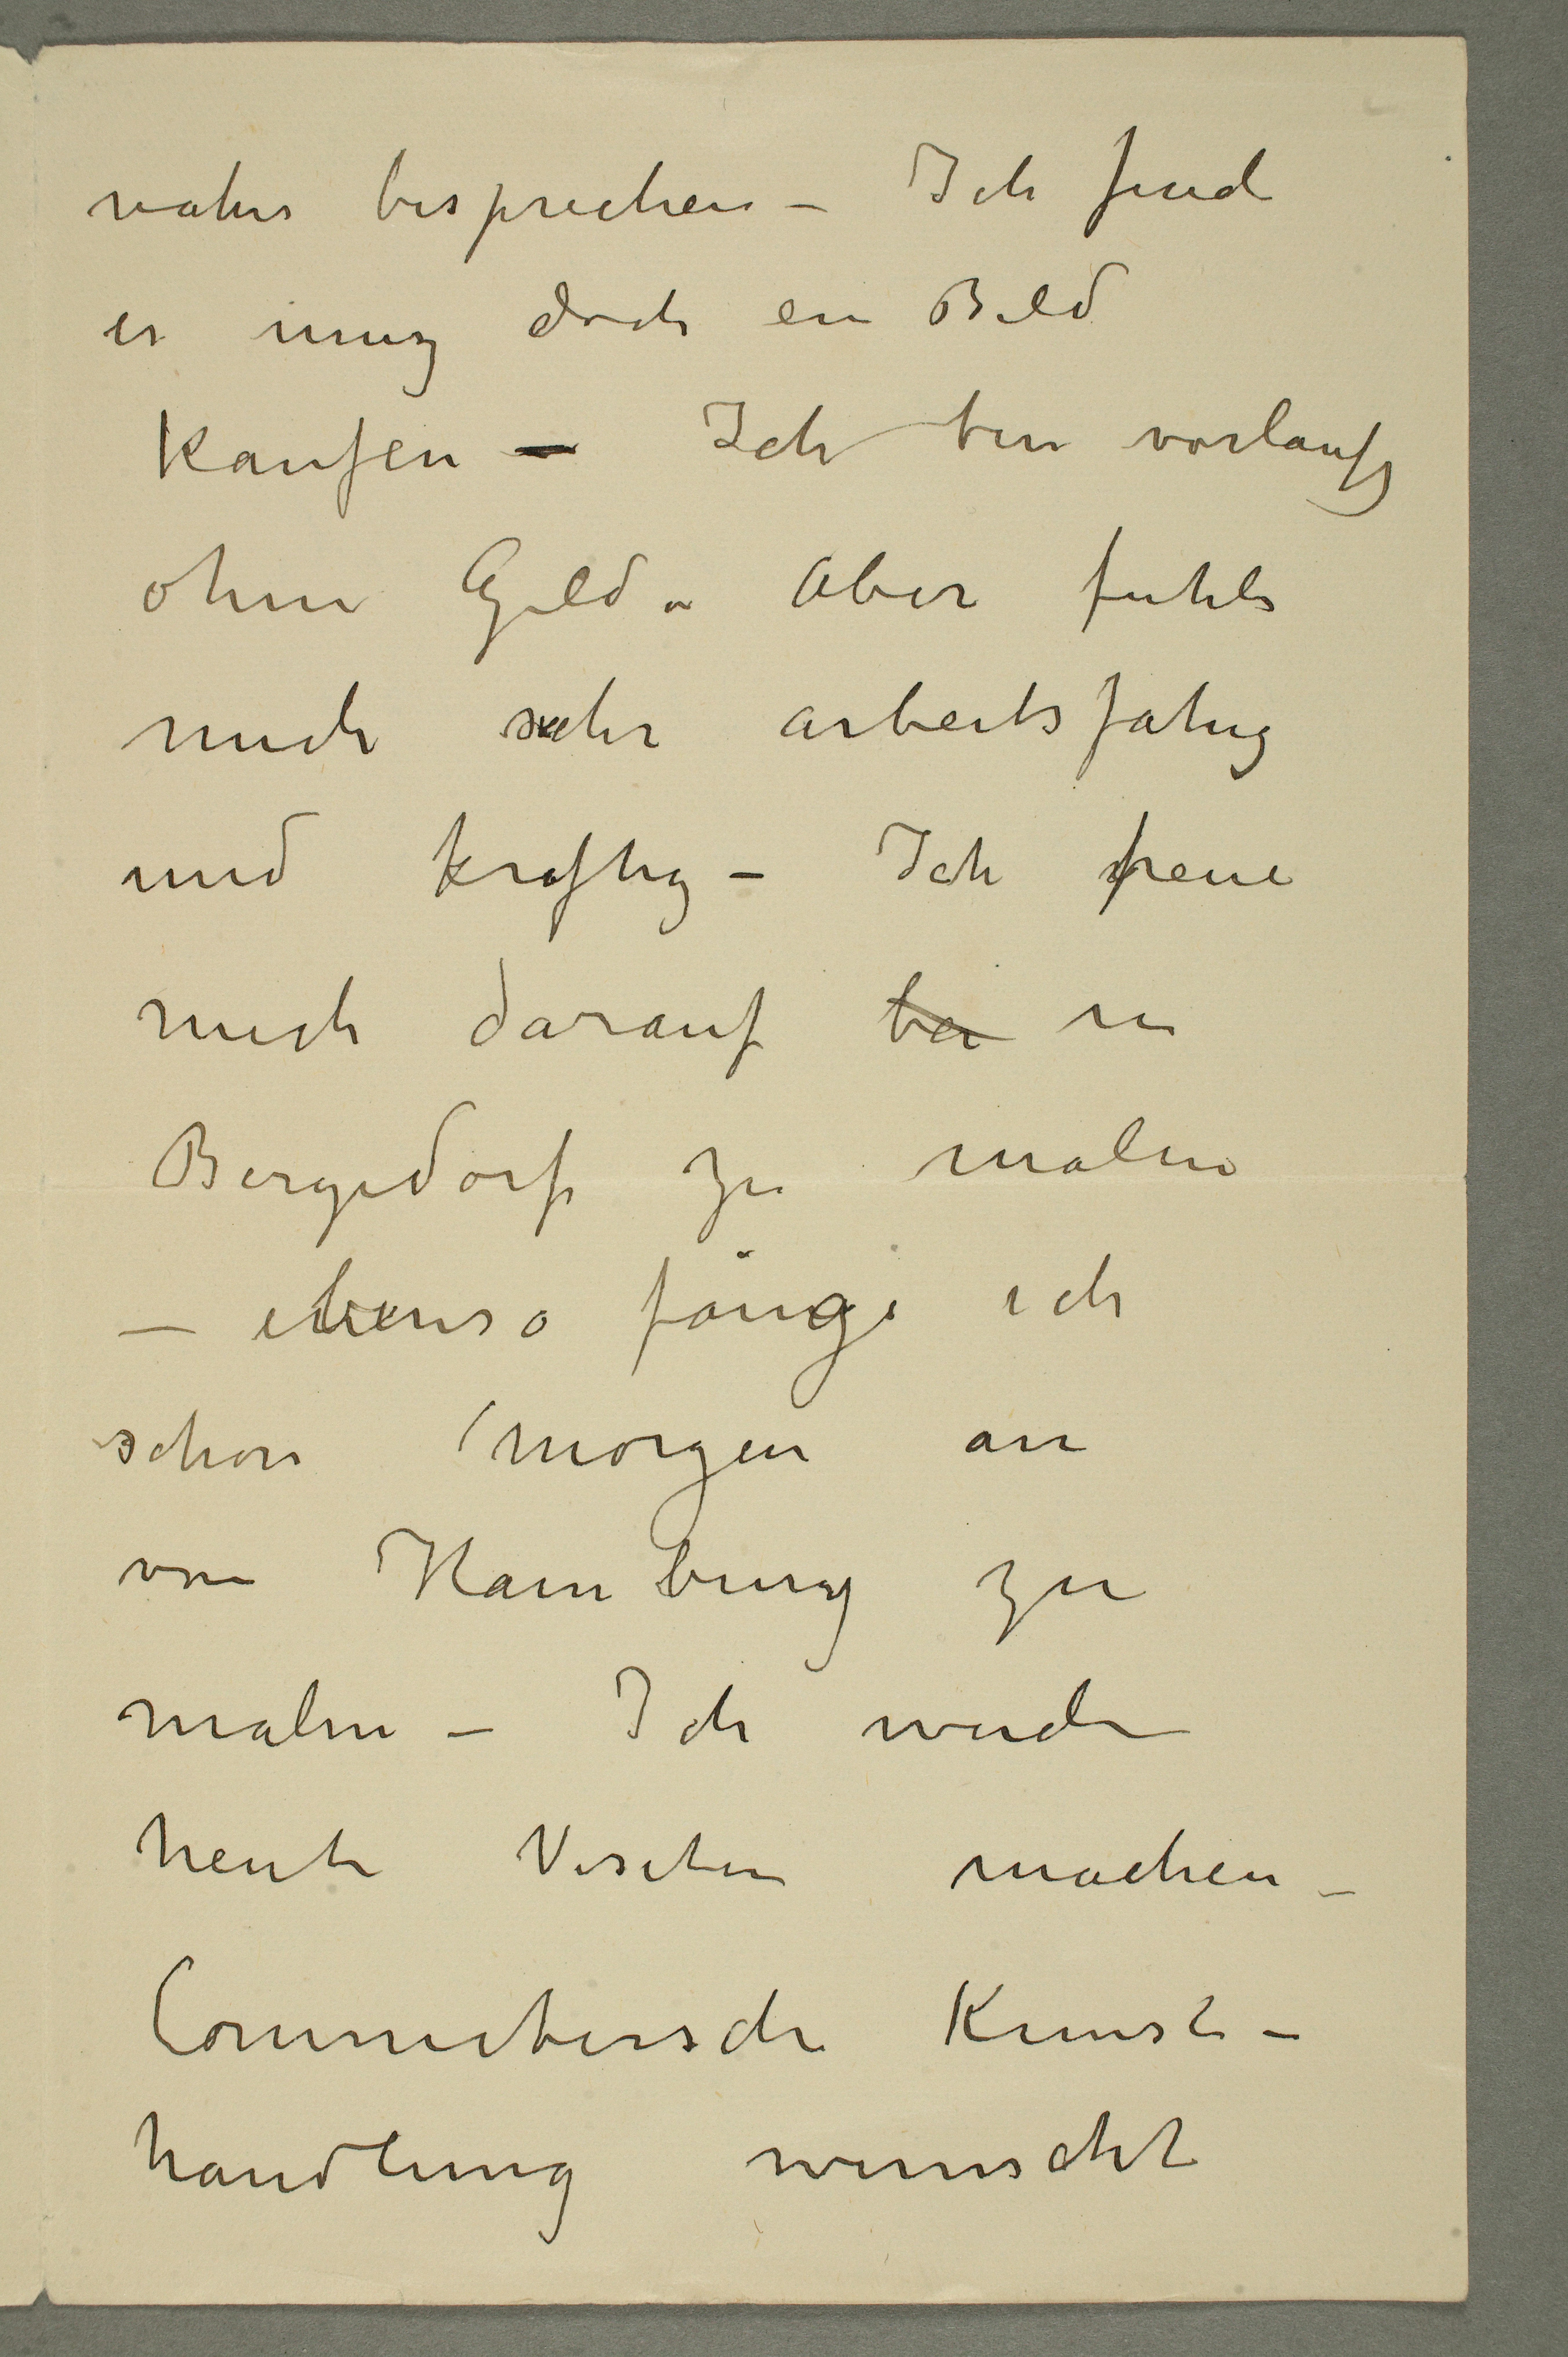 naher besprechen – Ich find
er musz doch ein Bild
kaufen – Ich bin vorlaufg
ohne Geld – aber fuhle
mich sehr arbeitsfahig
und kraftig – Ich freue
mich darauf bei in
Bergedorf zu malen
– ebenso fänge ich
schon morgen an
von Hamburg zu
malen – Ich werde
heute Visiten machen –
Commetersche Kunst–
handlung wunscht